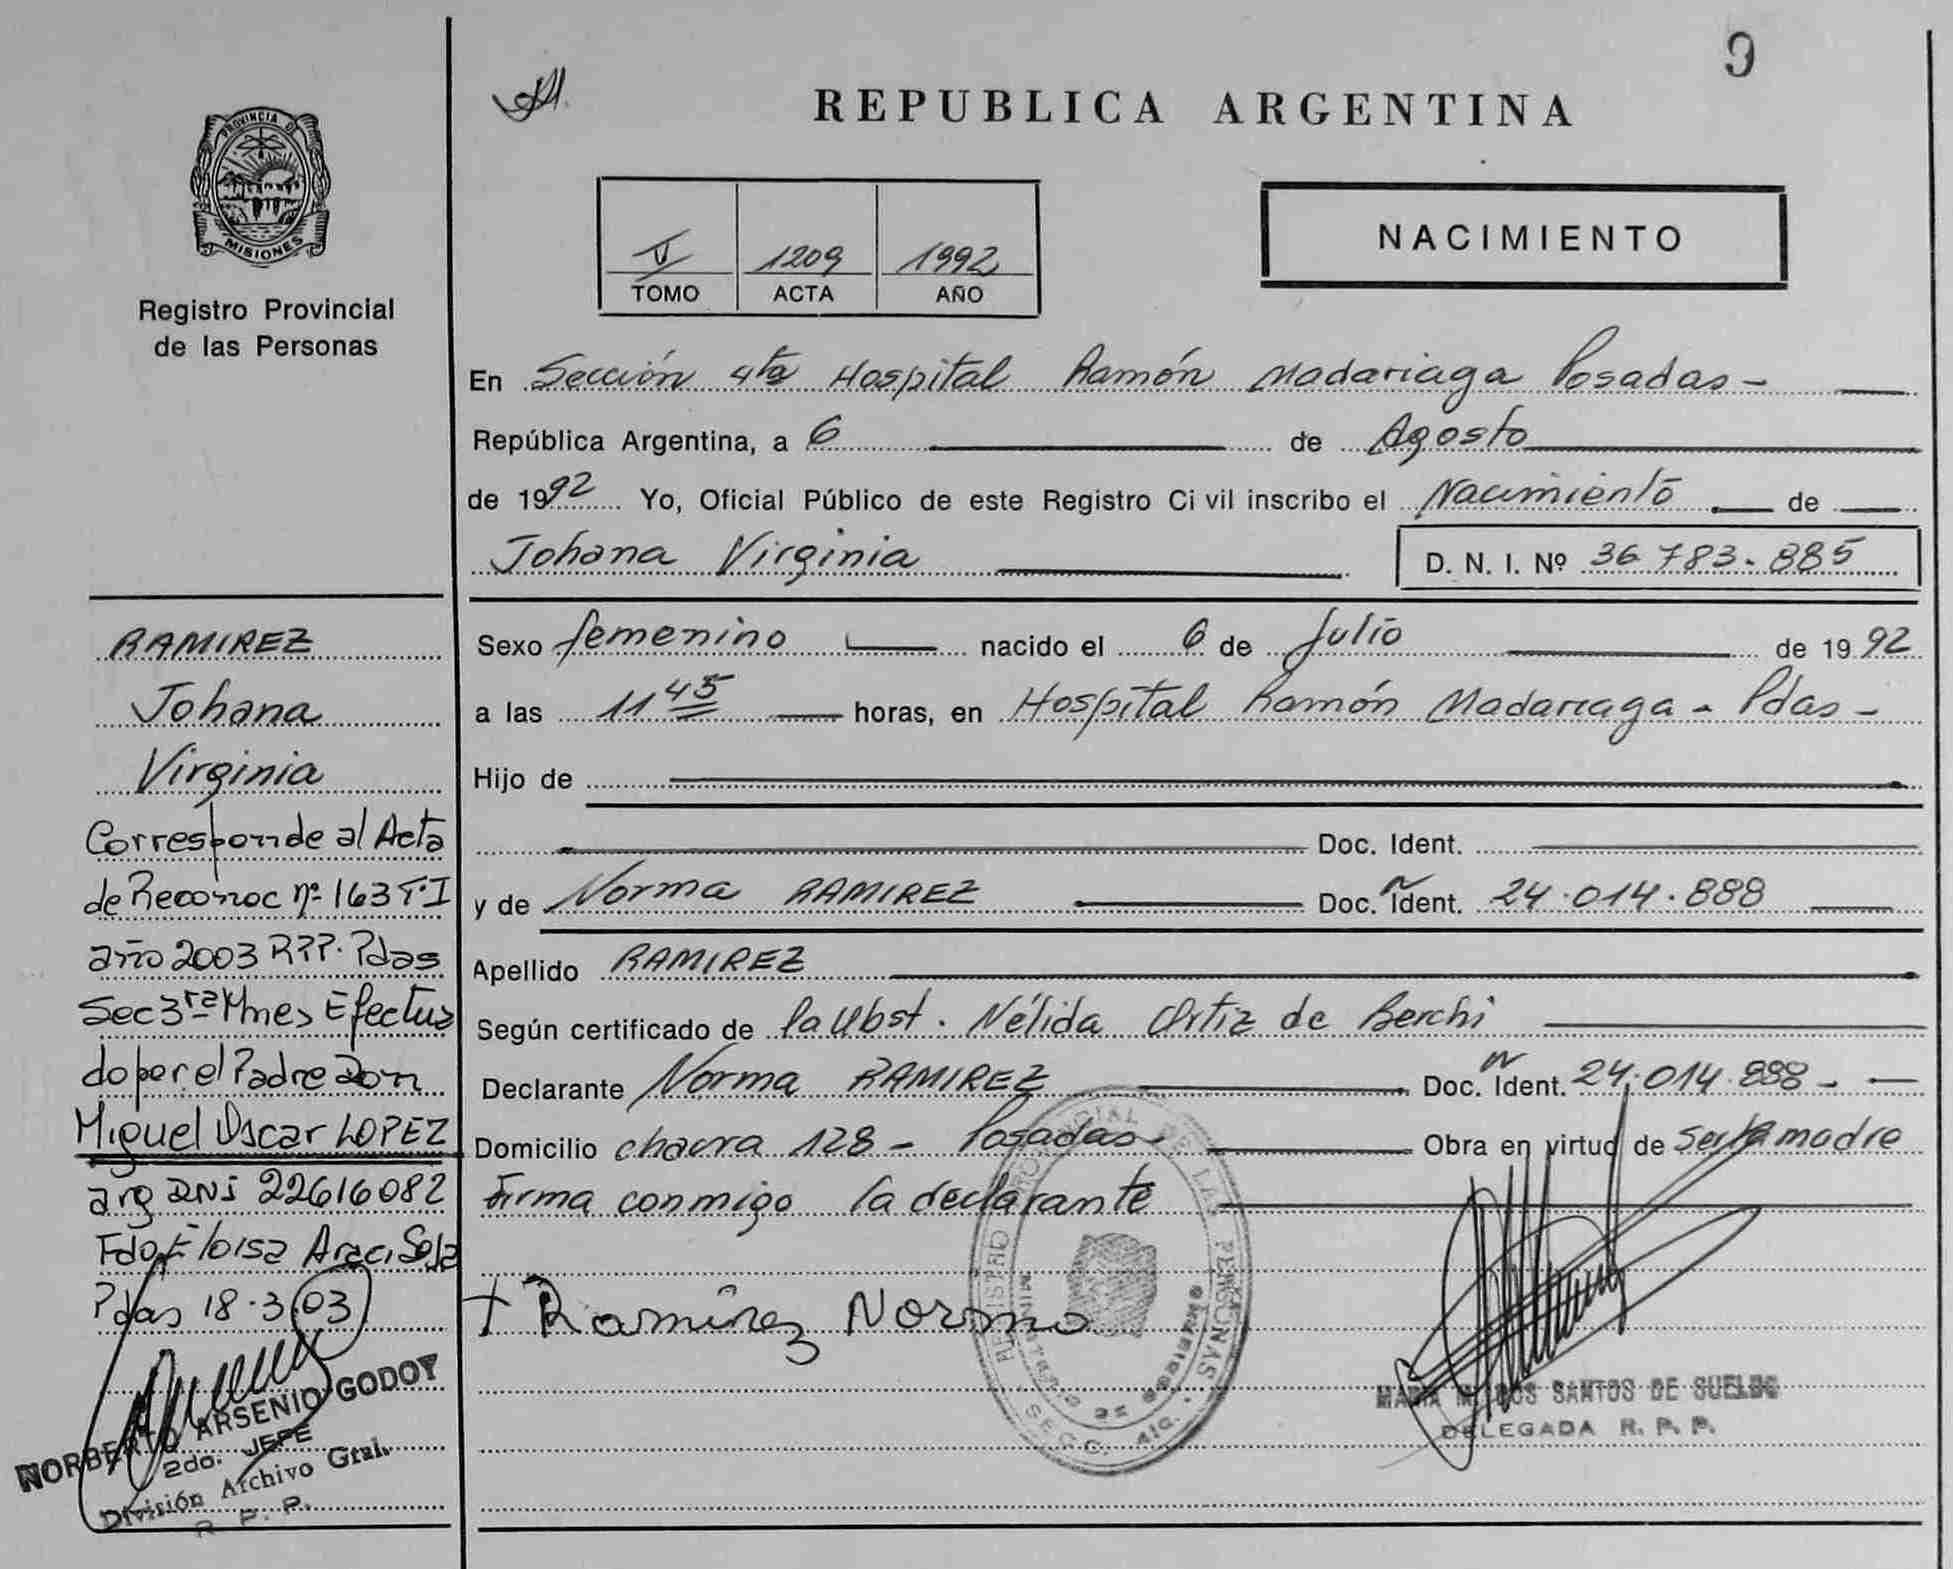 9
REPUBLICA ARGENTINA
PROVINCIA DE
MISIONES
Registro Provincial
de las Personas
V 1209 1992
TOMO ACTA AÑO
NACIMIENTO
En Sección 4ta Hospital Ramón Madariaga Posadas -
República Argentina, a 6 de Agosto
de 1992 Yo, Oficial Público de este Registro Civil inscribo el Nacimiento de
Johana Virginia D. N. I. Nº 36 783.885
Sexo femenino nacido el 6 de Julio de 1992
a las 11 45 horas, en Hospital Ramón Madariaga - Pdas -
Hijo de
Doc. Ident.
y de Norma RAMIREZ Doc. Ident. 24.014.888
Apellido RAMIREZ
Según certificado de la Obst. Nélida Ortiz de Berchi
Declarante Norma RAMIREZ Doc. Ident. 24.014.888 -
Domicilio chacra 128 - Posadas - Obra en virtud de ser la madre
Firma conmigo la declarante
+ Ramirez Norma
REGISTRO PROVINCIAL DE LAS PERSONAS
MINISTERIO DE GOBIERNO
SECC. 4ta.
MARIA M. DOS SANTOS DE SUELDO
DELEGADA R. P. P.
RAMIREZ
Johana
Virginia
Corresponde al Acta
de Reconoc nº 163 T.I
año 2003 R.P.P. Pdas
Sec 3ra Mnes Efectua
do por el Padre Don
Miguel Oscar LOPEZ
arg DNI 22616082
Fdo Eloisa Araci Sosa
Pdas 18.3.03
NORBERTO ARSENIO GODOY
2do. JEFE
División Archivo Gral.
R. P. P.